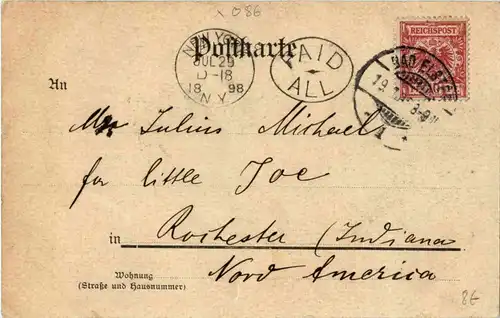 x 08€
Postkarte
NEW YORK
JUL 29
D-18
18 98
N.Y.
PAID
ALL
REICHSPOST
BAD ELSTER
19
8-9N
An
Mr. Julius Michael
for little Joe
in Rochester (Indiana
Nord America
Wohnung
(Straße und Hausnummer)
8€